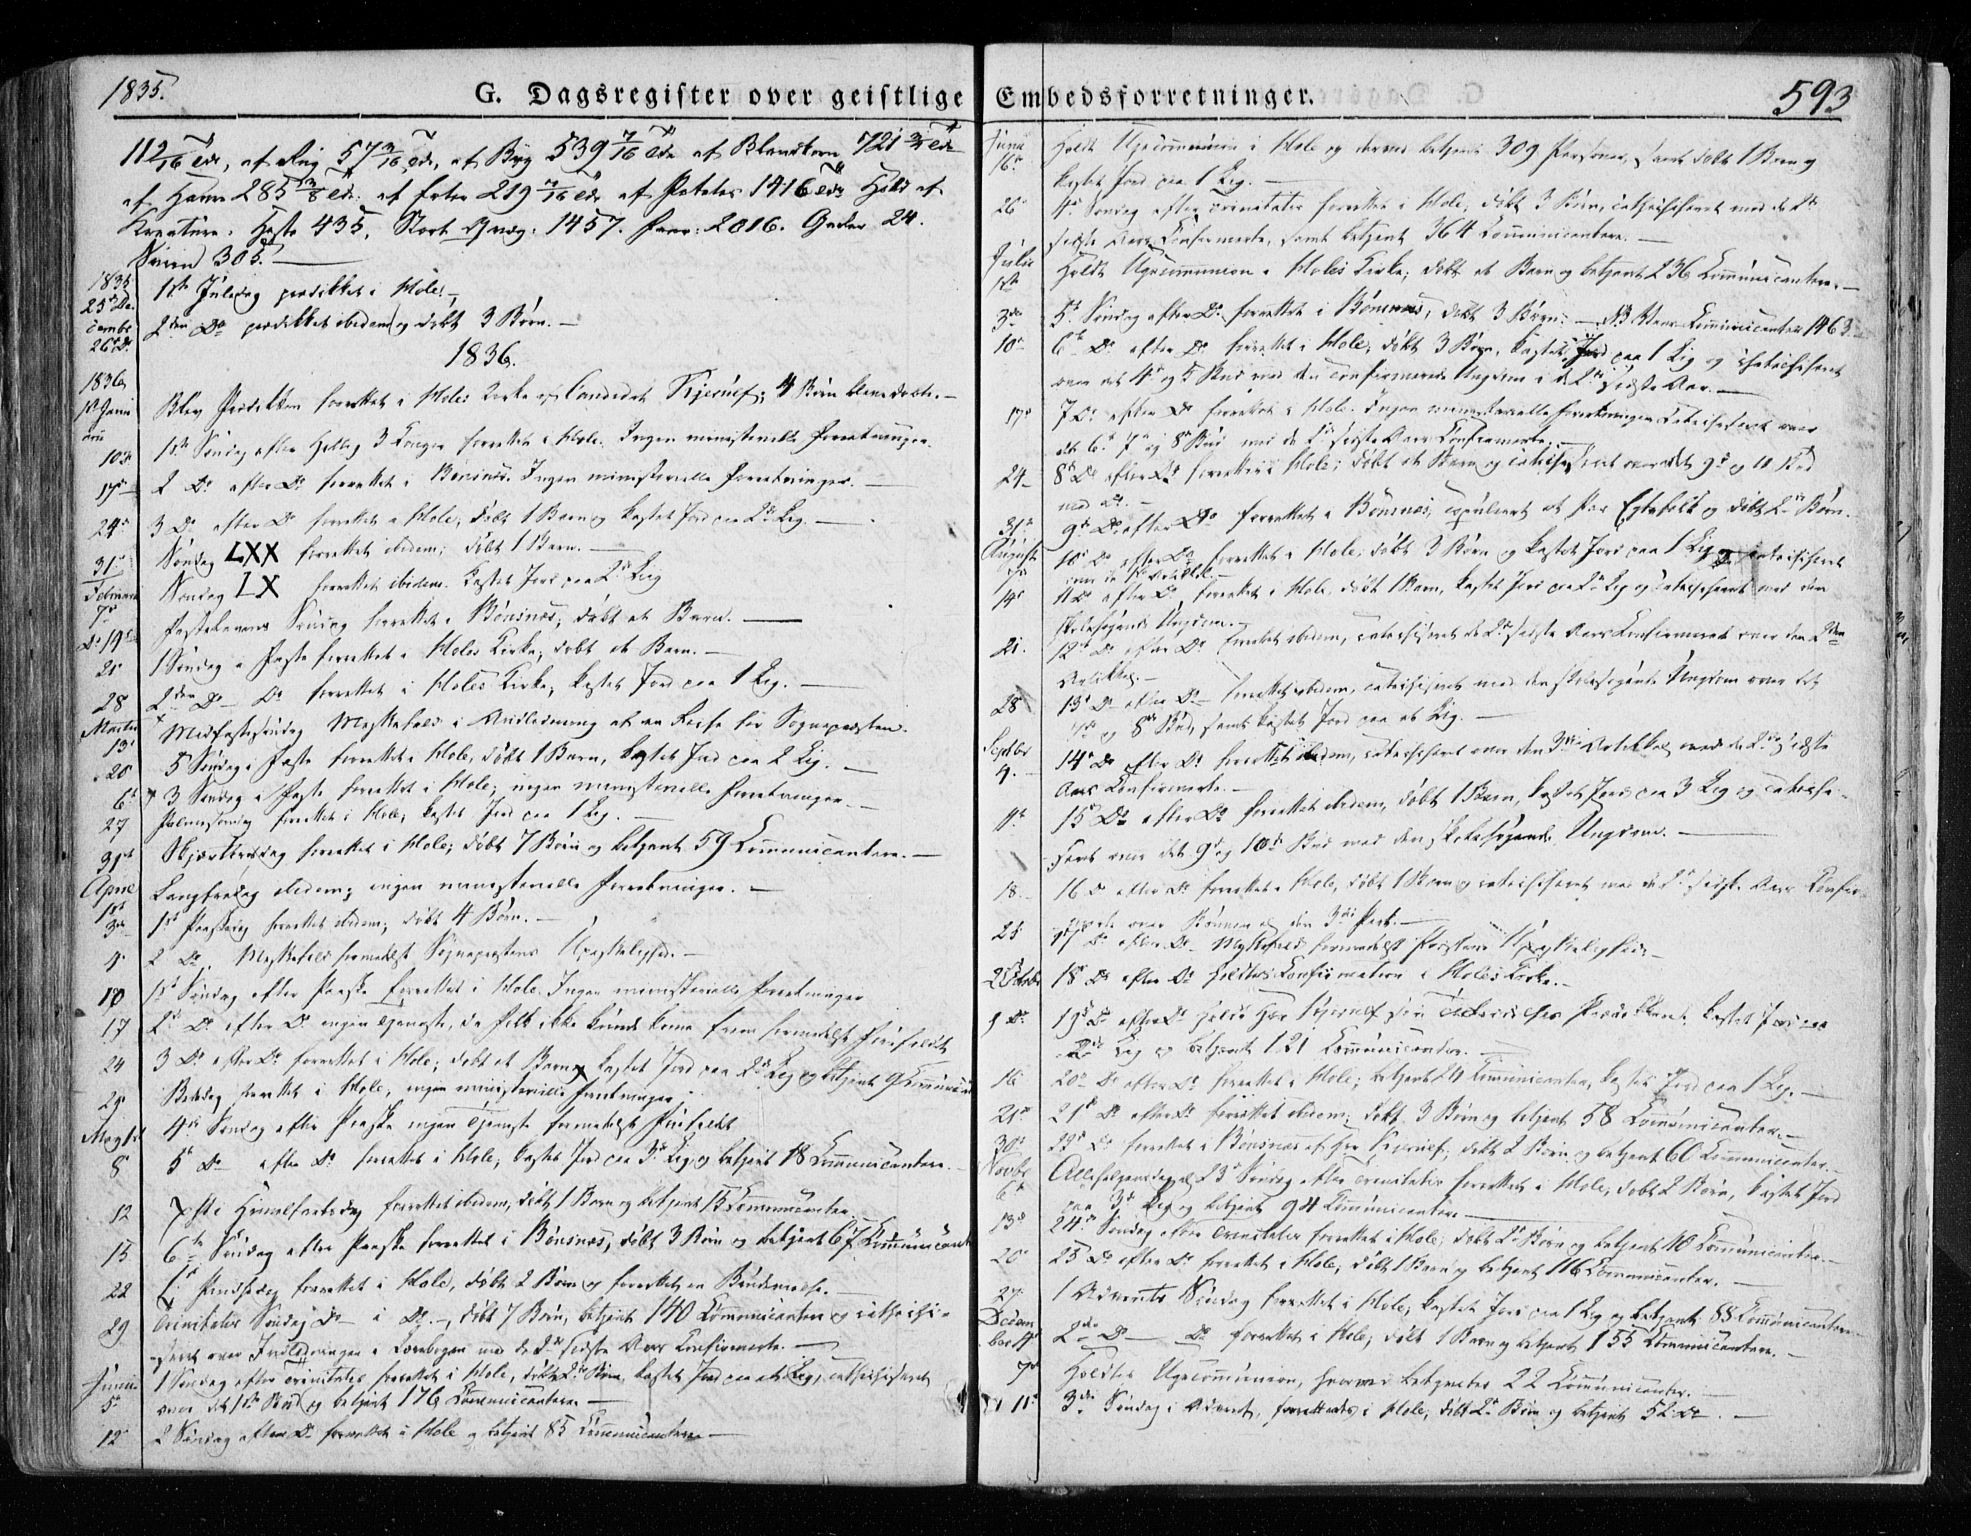 1835.
G. Dagsregister over geistlige Embedsforretninger.
593
112 /16 Tdr, af Rug 57 3/16 Tdr, af Byg 539 7/16 Tdr af Blandkorn 721 Tdr
af Havre 285 Tdr. af Erter 219 /16 Tdr af Potetes 1416 Tdr Hold af
Kreature. Heste 435, Stort Qvæg. 1457. Faar. 2016. Geder 24.
Sviin 305.
1835
25de De
cembr
1ste Juledag prædikket i Hole.
26 D.
2den Do prædikket ibidem og døbt 3 Børn.
1836.
1836
1st Janu
arii
Blev Prædiken forrettet i Holes Kirke af Candidat Kjerulf; 4 Børn
10de
1ste Søndag efter Hellig 3 Konger forrettet i Hole. Ingen ministerielle Forretninger.
17de
2 Do efter Do forrettet i Bønsnæs. Ingen ministerielle Forretninger.
24de
3 Do efter Do forrettet i Hole; døbt 1 Barn og kastet Jord paa 2de Lig.
31
Søndag LXX forrettet ibidem; døbt 1 Barn.
Februar
7de
Søndag LX forrettet ibidem. Kastet Jord paa 2de Lig
Do 14de
Fastelavns Søndag forrettet i Bønsnæs; døbt et Barn.
21
1 Søndag i Faste forrettet i Holes Kirke; døbt et Barn.
28
2den Do - Do forrettet i Holes Kirke; kastet Jord paa 1 Lig.
Martii
13
Midfastesøndag Messefald i Anledning af en Reise for Sognepræsten.
20
5 Søndag i Faste forrettet i Hole, døbt 1 Barn, kastet Jord paa 2 Lig.
6t
3 Søndag i Faste forrettet i Hole; ingen ministerielle Forretninger.
27
Palmesøndag forrettet i Hole; kastet Jord paa 1 Lig.
31te
Skjærtorsdag forrettet i Hole; døbt 7 Børn og betjent 59 Communicantere.
April
1ste
Langfredag ibidem; ingen ministerielle Forretninger.
3de
1ste Paaskedag forrettet ibidem; døbt 4 Børn.
4
2 Do. Messefald formedelst Sognepræstens Upasselighed.
10
1ste Søndag efter Paaske forrettet i Hole. Ingen ministerielle Forretninger
17
2de Do efter Do ingen Tjeneste, da Folk ikke kunde komme frem formedelst
24
3 Do efter Do forrettet i Hole; døbt et Barn, kastet Jord paa 2de Lig og betjent 9 Communic
29
Bededag forrettet i Hole, ingen ministerielle Forretninger
May 1ste
4de Søndag efter Paaske ingen Tjeneste formedelst
8
5te Do efter Do forrettet i Hole; kastet Jord paa 3de Lig og betjent 18 Communicantere.
12
Christi Himmelfartsdag forrettet ibidem, døbt 1 Barn og betjent 15 Communicanter
15
6te Søndag efter Paaske forrettet i Bønsnæs, døbt 3 Børn og betjent 67 Communicant
22
1ste Pindsedag forrettet i Hole, døbt 2 Børn og forrettet en Brudevielse.
29
Trinitatis Søndag Do i Do. døbt 7 Børn, betjent 140 Communicantere og catechi-
seret over Indledningen i Lærebogen med de 2de sidste Aars Confirmerte.
Junii
5te
1 Søndag efter Trinitatis forrettet i Hole, døbt 2de Børn, kastet Jord paa et Lig, catechiseret
over det 1ste Bud og betjent 176 Communicantere
12
2 Søndag efter Do forrettet i Hole og betjent 85 Communicantere
Junii
16de
Holdt Ugecommunion i Hole og derved betjent 309 Personer, samt døbt 1 Barn og
kastet Jord paa 1 Lig.
26
4de Søndag efter Trinitatis forrettet i Hole, døbt 3 Børn, catechiseret med de 2de
sidste Aars Confirmerte, samt betjent 364 Communicantere.
Julii
1ste
Holdt Ugecommunion i Holes Kirke; døbt et Barn og betjent 236 Communicantere.
3de
5te Søndag efter Do forrettet i Bønsnæs, døbt 3 Børn. NB Communicanter 1463
10
6te Do efter Do forrettet i Hole; døbt 3 Børn, kastet Jord paa 1 Lig og catechiseret
over det 4de og 5 Bud med den confirmerede Ungdom i de 2de sidste Aar.
17de
7 Do efter Do forrettet i Hole. Ingen ministerielle Forretninger Catechiseret over
det 6te 7de og 8de Bud med de 2de sidste Aars Confirmerte.
24
8de Do efter Do forrettet i Hole; døbt et Barn og catechiseret over det 9de og 10 Bud
31te
9de Do efter Do forrettet i Bønsnæs, copuleert et Par Egtefolk og døbt 2de Børn.
Augusti
7de
10de Do efter Do forrettet i Hole; døbt 3 Børn og kastet Jord paa 1 Lig og catechiseret
over de 1ste Artikkel
14
11 Do efter Do forrettet i Hole, døbt 1 Barn, kastet Jord paa 2de Lig og catechiseret med den
skolesøgende Ungdom.
21.
12te Do efter Do forrettet ibidem, catechiseret de 2de sidste Aars Confirmerede over den 2den
Artikkel.
28
13de Do efter Do forrettet ibidem, catechiseret med den skolesøgende Ungdom over det
7de og 8de Bud, samt kastet Jord paa et Lig.
Septbr
4.
14de Do efter Do forrettet ibidem, catechiseret over den 3die Artikkel med de 2de sidste
Aars Confirmerte.
11te
15de Do efter Do forrettet ibidem, døbt 1 Barn, kastet Jord paa 3 Lig og catechi-
seret over det 9de og 10de Bud med den skolesøgende Ungdom.
18
16 Do efter Do forrettet i Hole, døbt 1 Barn og catechiseret med de 2de sidste Aars Confir-
merte over Bønnen og den 3die Part.
25
17 Do efter Do Messefald formedelst Præstens Upasselighed.
2 October
18de Do efter Do holdtes Confirmation i Holes Kirke.
9 Do
19de Do efter Do holdt Hr Kjerulf sin Tiltrædelses Prædikken, kastet Jord paa
2de Lig og betjent 121 Communicanter.
16
20de Do efter Do forrettet i Hole; betjent 24 Communicanter, kastet Jord paa 1 Lig.
21de Do efter Do forrettet ibidem; døbt 3 Børn og betjent 58 Communicanter.
30te
22de Do forrettet i Bønsnæs af Hr Kjerulf; døbt 2 Børn og betjent 60 Communicanter.
Novbr
6te
Allehelgensdag el 23de Søndag efter Trinitatis forrettet i Hole, døbt 2 Børn, kastet Jord
paa 3de Lig og betjent 94 Communicanter
13de
24de Søndag efter Trinitatis forrettet i Hole; døbt 2de Børn og betjent 10 Communicanter
20
25 Do efter Do forrettet i Hole; døbt 1 Barn og betjent 116 Communicanter.
27
1 Advents Søndag forrettet i Hole; kastet Jord paa 1 Lig og betjent 88 Communicantere
Decem
ber 4de
2den Do Do forrettet i Hole; døbt 1 Barn og betjent 155 Communicantere.
7de
Holdtes Ugecommunion, hvorved betjentes 22 Communicanter.
11te
3die Søndag i Advent, forrettedes i Hole, døbt 2de Børn og betjent 52 Do